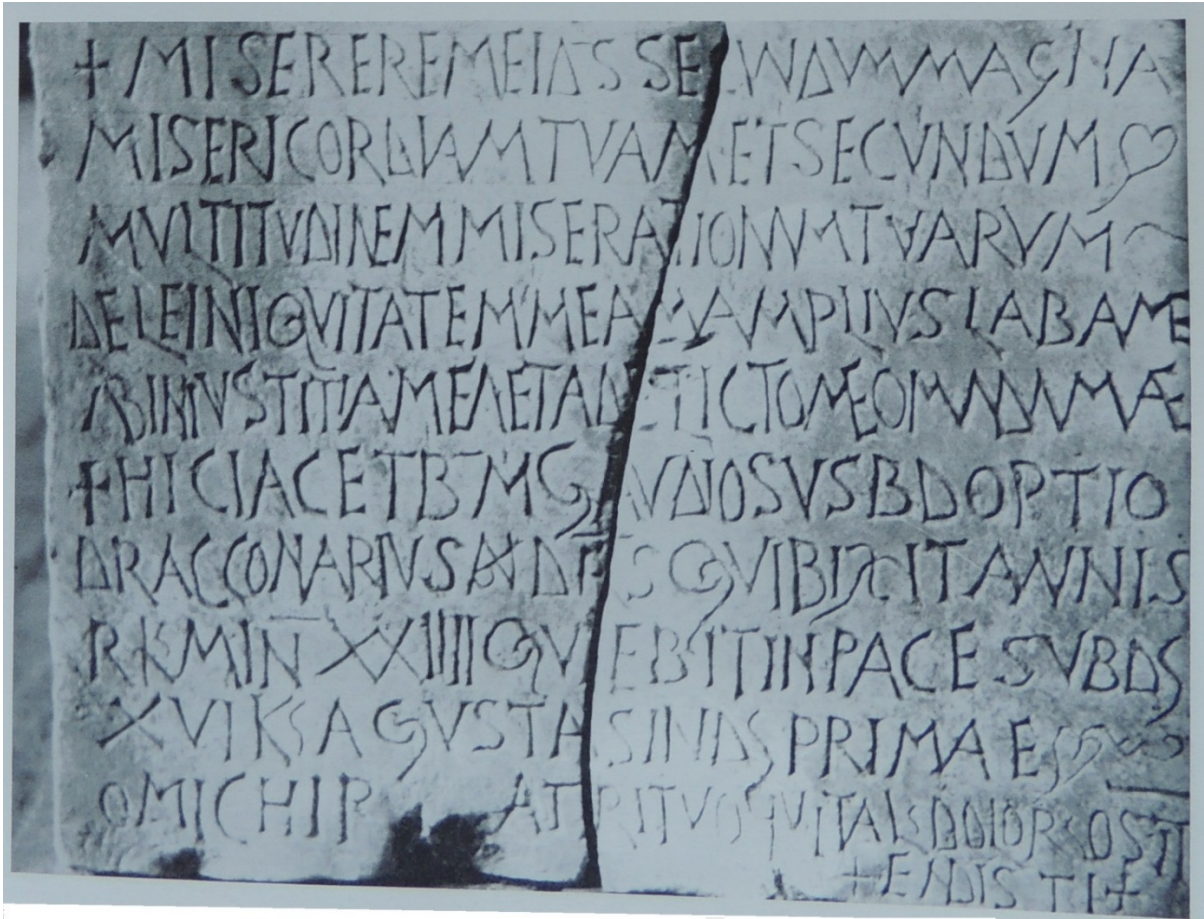 + MISEREREMEI DS SECUNDUM MAGNA
MISERICORDIAM TVAM ET SECVNDVM
MVLTITVDINEM MISERATIONVM TVARVM
DELE INIQVITATEM MEAM AMPLIVS LABA ME
AB INIVSTITIA MEA ET A DELICTO MEO MVNDV MAE
+ HIC IACET B M GAVDIOSVS B D OPTIO
DRACCONARIVS QVI BIXIT ANNIS
MIN XXIIII QVEBIT IN PACE SVB DS
XVI KS AGVSTAS IND S PRIMA
ATRI
TENDISTI +